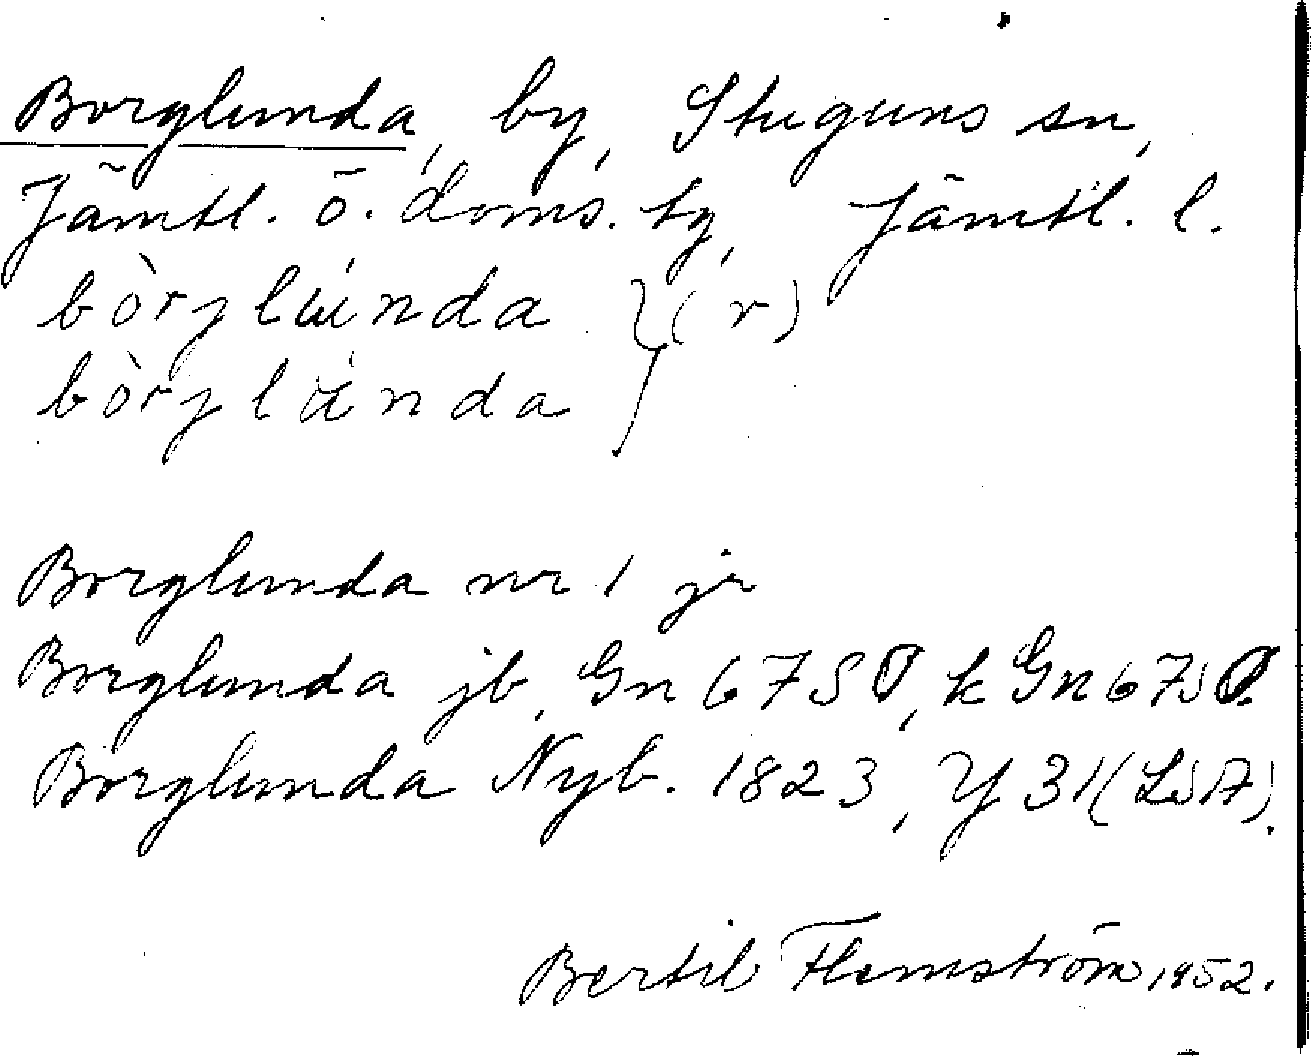 Borglunda, by, Stuguns sn,
Jämtl. ö. doms. tg, Jämtl. l.
bòrjlúnda } (r)
bòrjlúnda
Borglunda nr 1 jr
Borglunda jb, Gn 67 S Ø, k Gn 67 S Ø.
Borglunda Nyb. 1823, Y 31 (LSA).
Bertil Flemström 1952.